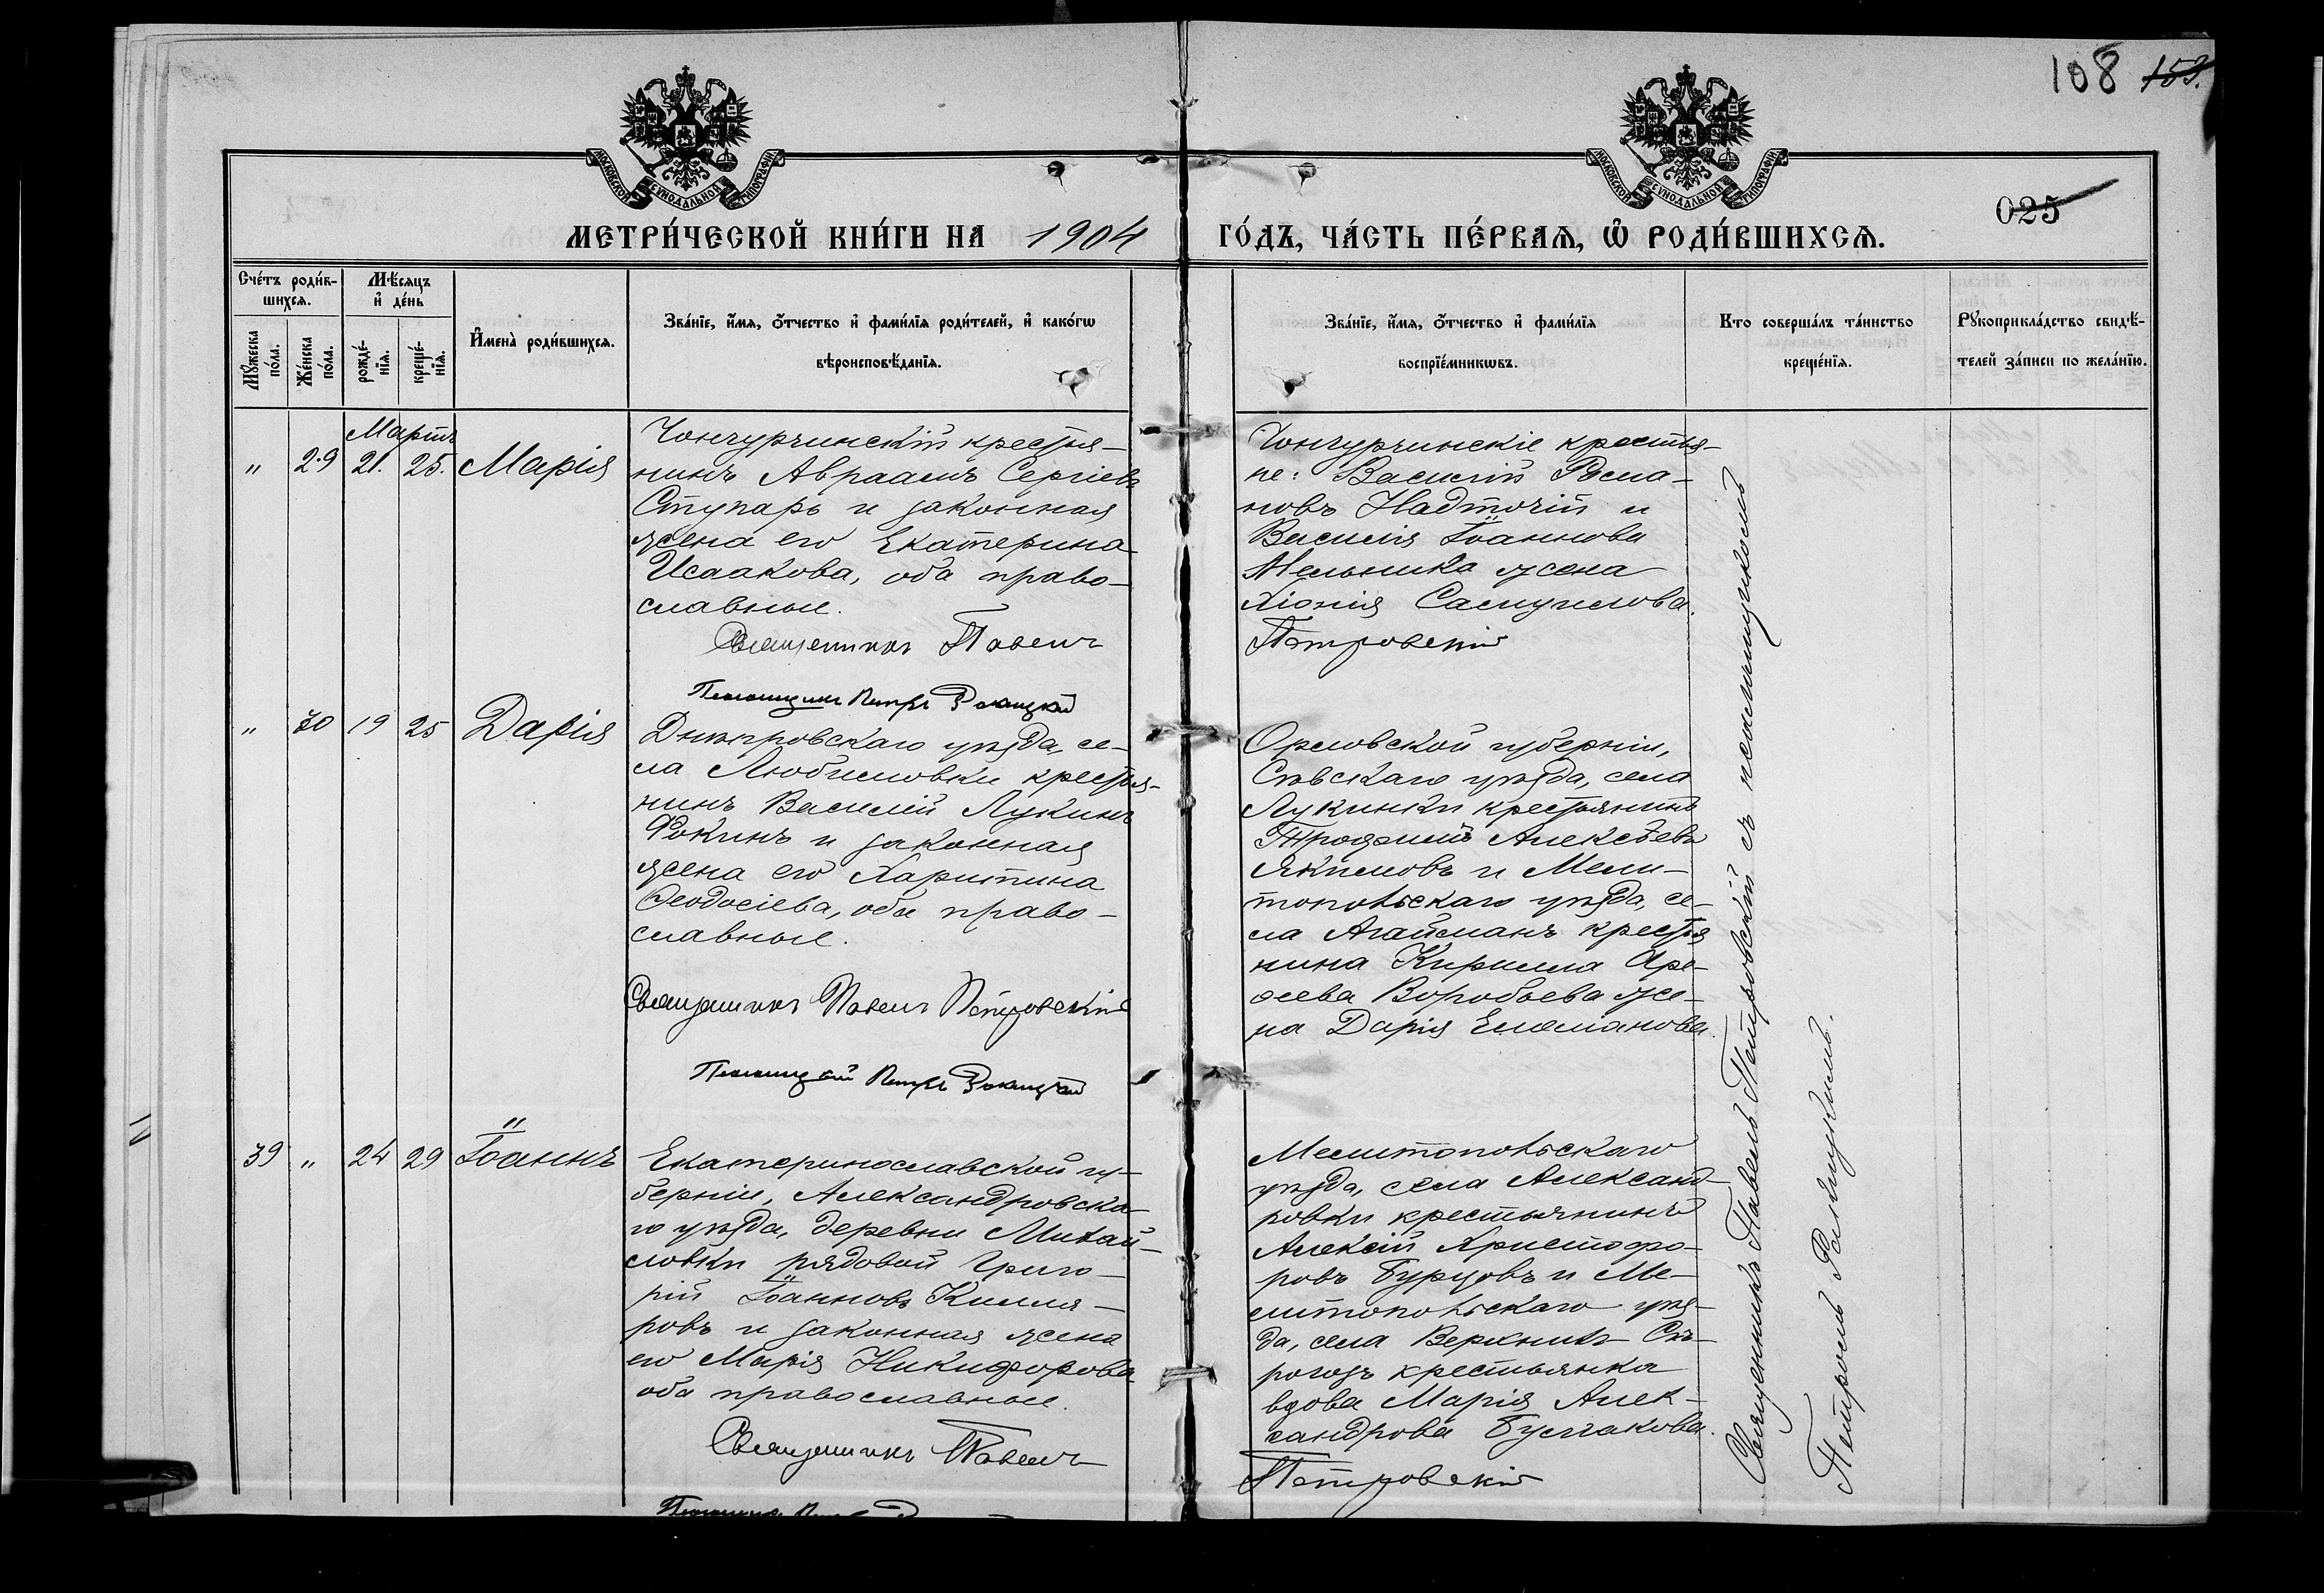 108 153.
МОСКОВСКОЙ СѴНОДАЛЬНОЙ ТИПОГРАФІИ
МОСКОВСКОЙ СѴНОДАЛЬНОЙ ТИПОГРАФІИ
025
МЕТРИ́ЧЕСКОЙ КНИ́ГИ НА 1904 ГО́ДЪ, ЧА́СТЬ ПЕ́РВАѦ, Ѡ҆ РОДИ́ВШИХСѦ.
Сче́тъ роди́в-
шихсѧ.
Мꙋ́жеска по́ла.
Же́нска по́ла.
Мѣ́сѧцъ
и҆ де́нь
рожде́-
нїѧ.
креще́-
нїѧ.
И҆мена̀ роди́вшихсѧ.
Зва́нїе, и҆́мѧ, ѻ҆́тчество и҆ фами́лїѧ роди́телей, и҆ како́гѡ
вѣроисповѣ́данїѧ.
Зва́нїе, и҆́мѧ, ѻ҆́тчество и҆ фами́лїѧ
воспрїе́мникѡвъ.
Кто соверша́лъ та́инство
креще́нїѧ.
Рꙋкоприкла́дство свидѣ́-
телей за́писи по жела́нїю.
Мартъ
" 29 21. 25. Марія
Чонгурчинскій крестья-
нинъ Авраамъ Сергіевъ
Ступарь и законная
жена его Екатерина
Исаакова, оба право-
славные.
Священникъ Павелъ
Чонгурчинскіе крестья-
не: Василій Рома-
новъ Надточій и
Василія Іоаннова
Мельника жена
Хіонія Самуилова.
Петровскій
Псаломщикъ Петръ Ракицкій
" 30 19 25 Дарія
Днѣпровскаго уѣзда, се-
ла Любимовки крестья-
нинъ Василій Лукинъ
Фокинъ и законная
жена его Харитина
Ѳеодосіева, оба право-
славные.
Священникъ Павелъ Петровскій
Псаломщикъ Петръ Ракицкій
Орловской губерніи,
Сѣвскаго уѣзда, села
Лукинки крестьянинъ
Трофимъ Алексѣевъ
Якимовъ и Мели-
топольскаго уѣзда, се-
ла Агайманъ крестья
нина Кирилла Аре-
ѳева Воробьева же-
на Дарія Емелианова.
39 " 24 29 Іоаннъ
Екатеринославской гу-
берніи, Александровска-
го уѣзда, деревни Михай-
ловки рядовой Григо-
рій Іоанновъ Килля-
ровъ и законная жена
его Марія Никифорова
оба православные.
Священникъ Павелъ
Мелитопольскаго
уѣзда, села Александ-
ровки крестьянинъ
Алексій Христофо-
ровъ Бурцовъ и Ме-
литопольскаго уѣз-
да, села Верхнихъ Сѣ-
рогозъ крестьянка
вдова Марія Алек-
сандрова Булгакова.
Петровскій
Священникъ Павелъ Петровскій съ псаломщикомъ
Петромъ Ракицкимъ.